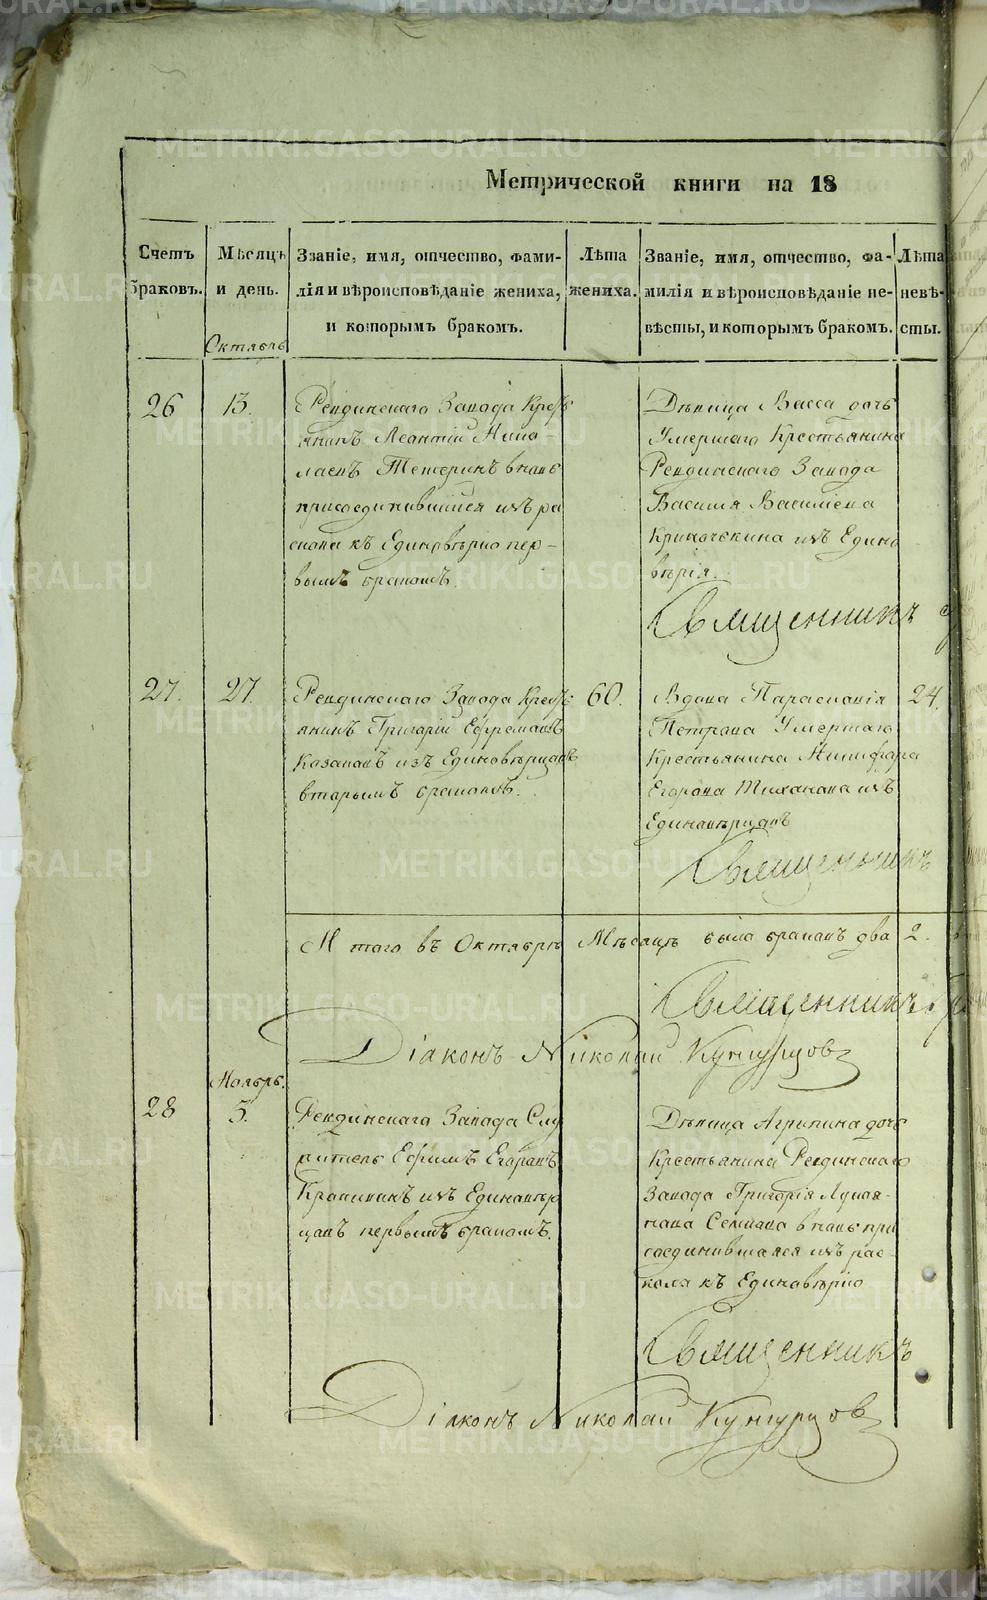 Метрической книги на 18
Счетъ браковъ.
Мѣсяцъ и день.
Званіе, имя, отчество, фами-
лія и вѣроисповѣданіе жениха,
и которымъ бракомъ.
Лѣта
жениха.
Званіе, имя, отчество, фа-
милія и вѣроисповѣданіе не-
вѣсты, и которымъ бракомъ.
Лѣта
невѣ-
сты.
Октябрь
26
13.
Ревдинскаго Завода Кресть
янинъ Леонтій Нико
лаевъ Тетеринъ вновь
присоединившийся изъ ра
скола къ Единовѣрію пер-
вымъ бракомъ.
Дѣвица Васса дочь
Умершаго Крестьянина
Ревдинскаго Завода
Василия Васильева
изъ Едино
вѣрія.
Священникъ
27.
27.
Ревдинскаго Завода Кресть
янинъ Григорій Ефремовъ
Казаковъ изъ Единовѣрцовъ
вторымъ бракомъ.
60.
Вдова Парасковія
Петрова Умершаго
Крестьянина Никифора
Егорова изъ
Единовѣрцовъ
24.
Священникъ
И того въ Октябрѣ Мѣсяцѣ было браковъ два 2.
Священникъ
Діаконъ Николай Кунгурцовъ
Ноябрь.
28
5.
Ревдинскаго Завода Слу
житель Ефимъ Егоровъ
изъ Единовѣр
цовъ первымъ бракомъ.
Дѣвица Агрипина дочь
Крестьянина Ревдинскаго
Завода Григорія Лукоя-
нова вновь при
соединившаяся изъ рас-
кола къ Единовѣрію
Священникъ
Діаконъ Николай Кунгурцовъ
METRIKI.GASO-URAL.RU